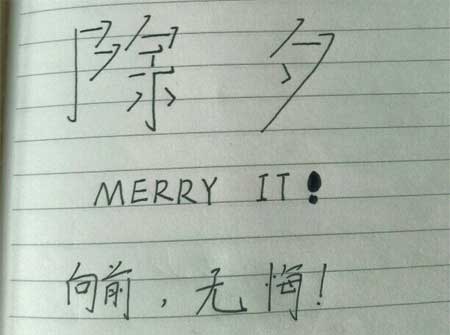 除夕
MERRY IT!
向前，无悔!